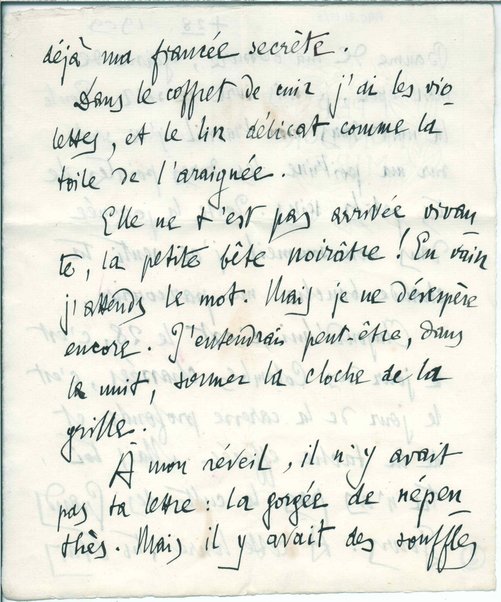 déjà ma fiancée secrète.
Dans le coffret de cuir j'ai les vio
lettes, et le lin délicat comme la
toile de l'araignée.
Elle ne t'est pas arrivée vivan
te, la petite bête noirâtre! En vain
j'attends le mot. Mais je ne désespère
encore. J'entendrai peut-être, dans
la nuit, sonner la cloche de la
grille.
À mon réveil, il n'y avait
pas ta lettre : la gorgée de népen
thès. Mais il y avait des souffles